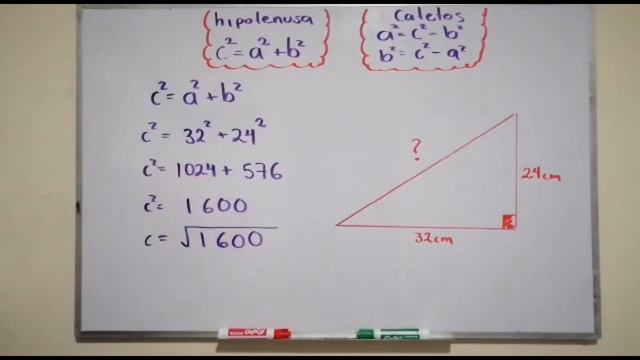 hipotenusa
c² = a² + b²
Catetos
a² = c² - b²
b² = c² - a²
c² = a² + b²
c² = 32² + 24²
c² = 1024 + 576
c² = 1600
c = √1600
?
24cm
32cm